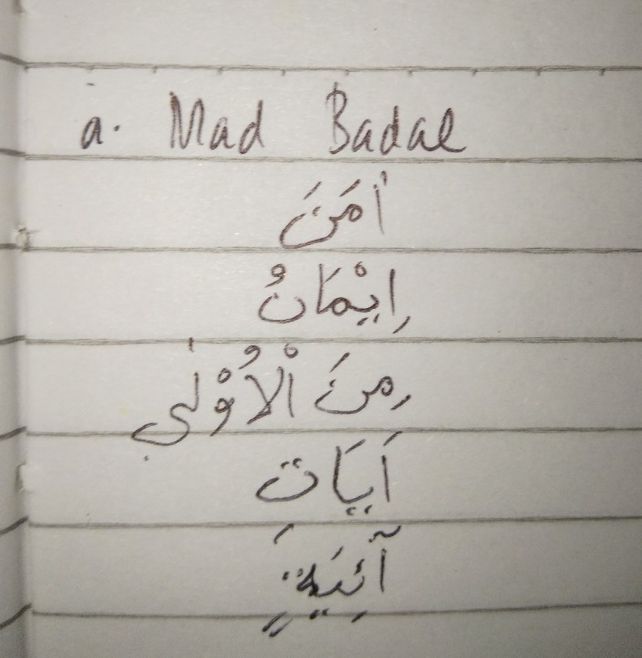 a. Mad Badal
اٰمَنَ
اِيْمَانٌ
مِنَ الْاُوْلٰى
اَيَات
آئِيَةٍ